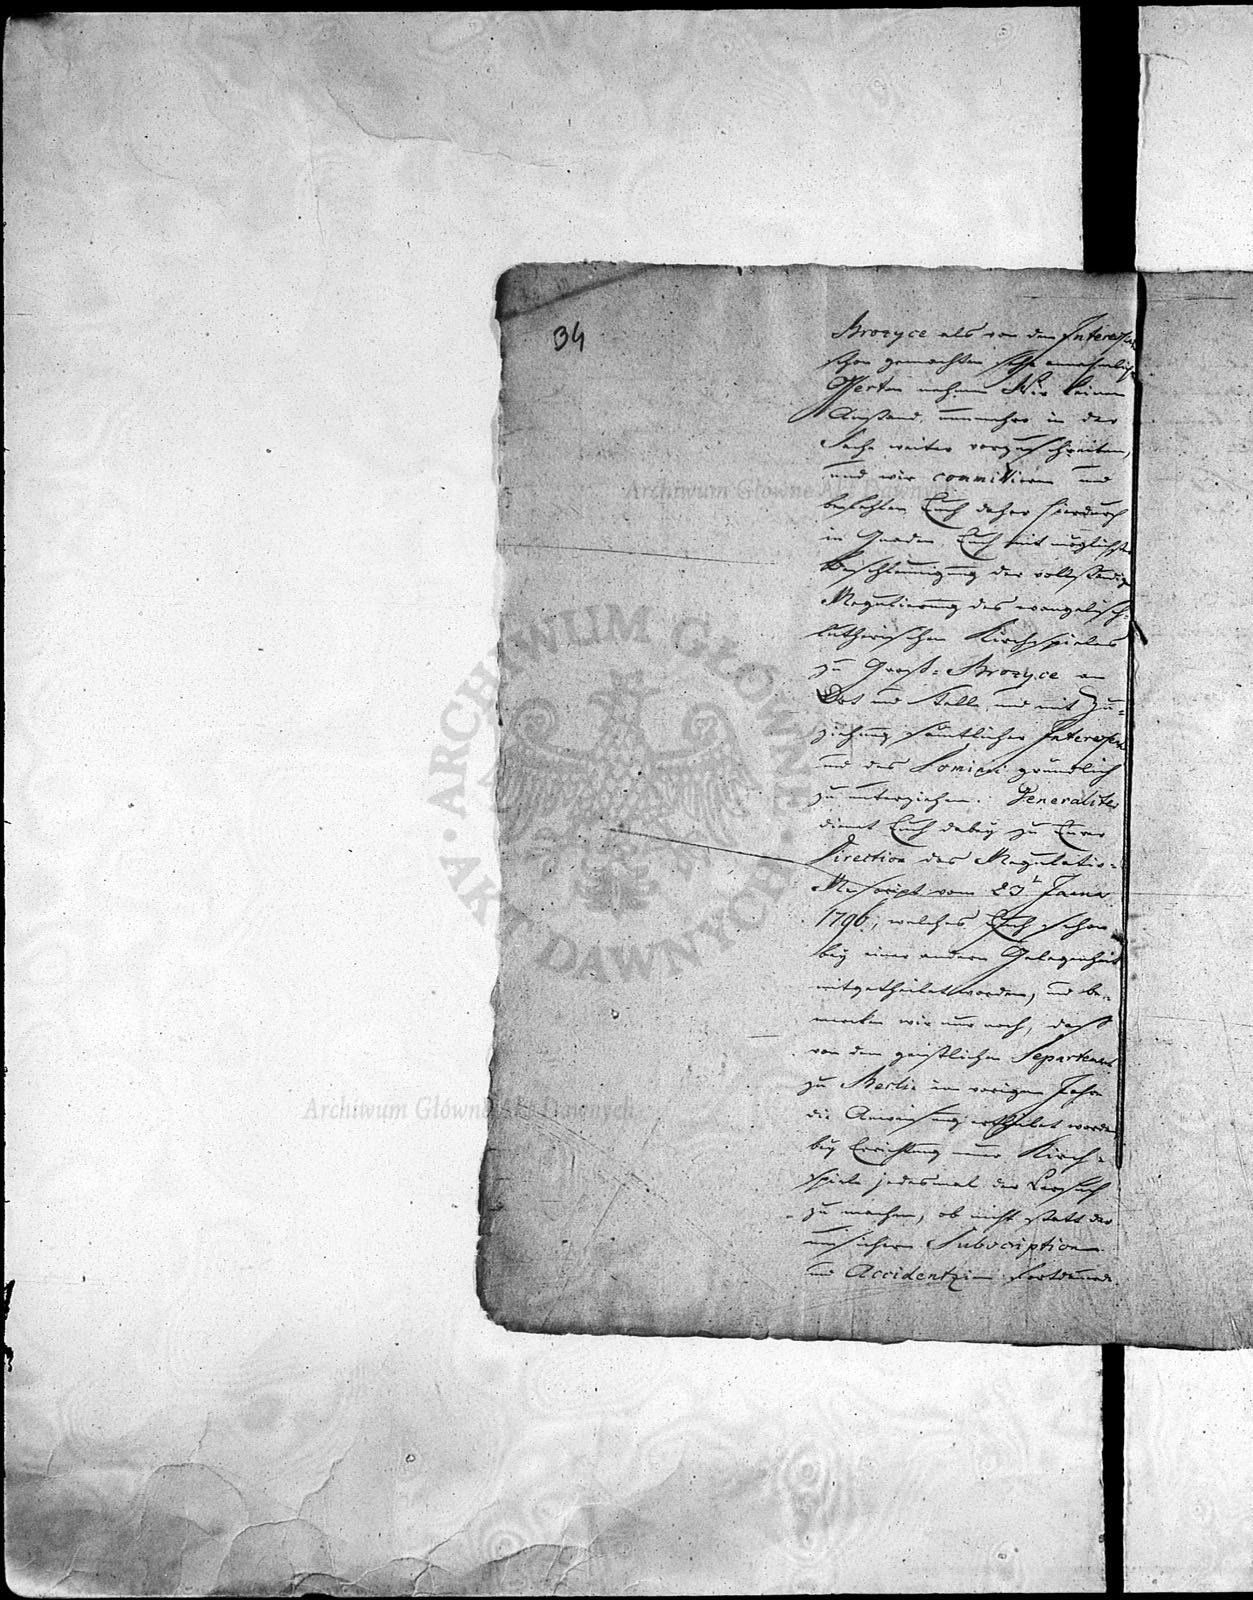 34
Brozyce als von den Interessen
schon gemachten sehr annehmlich
Offerten nehmen Wir keinen
Anstand, nunmehro in der
Sache weiter vorzuschreiten,
und wir committiren und
befehlen Euch daher hierdurch
in Gnaden, Euch mit möglichster
Beschleunigung der vollständigen
Regulierung des evangelisch-
lutherischen Kirchspieles
zu Gross-Brozyce an
Ort und Stelle, und mit Zu-
ziehung sämtlicher Interessen
und des Dominii gründlich
zu unterziehen. Generaliter
dienet Euch dabey zu Eurer
Direction das Regulativ-
Rescript vom 23t Januar
1796, welches Euch schon
bey einer andern Gelegenheit
mitgetheilet worden, und be-
mercken wir nur noch, dass
von dem geistlichen Departement
zu Berlin im vorigen Jahre
die Anweisung ertheilet worden
bey Errichtung neuer Kirch-
spiele jedesmal den Versuch
zu machen, ob nicht statt der
unsichern Subscription
und Accidentzien fortdaurende
Archiwum Główne Akt Dawnych
ARCHIWUM GŁÓWNE AKT DAWNYCH
Archiwum Główne Akt Dawnych